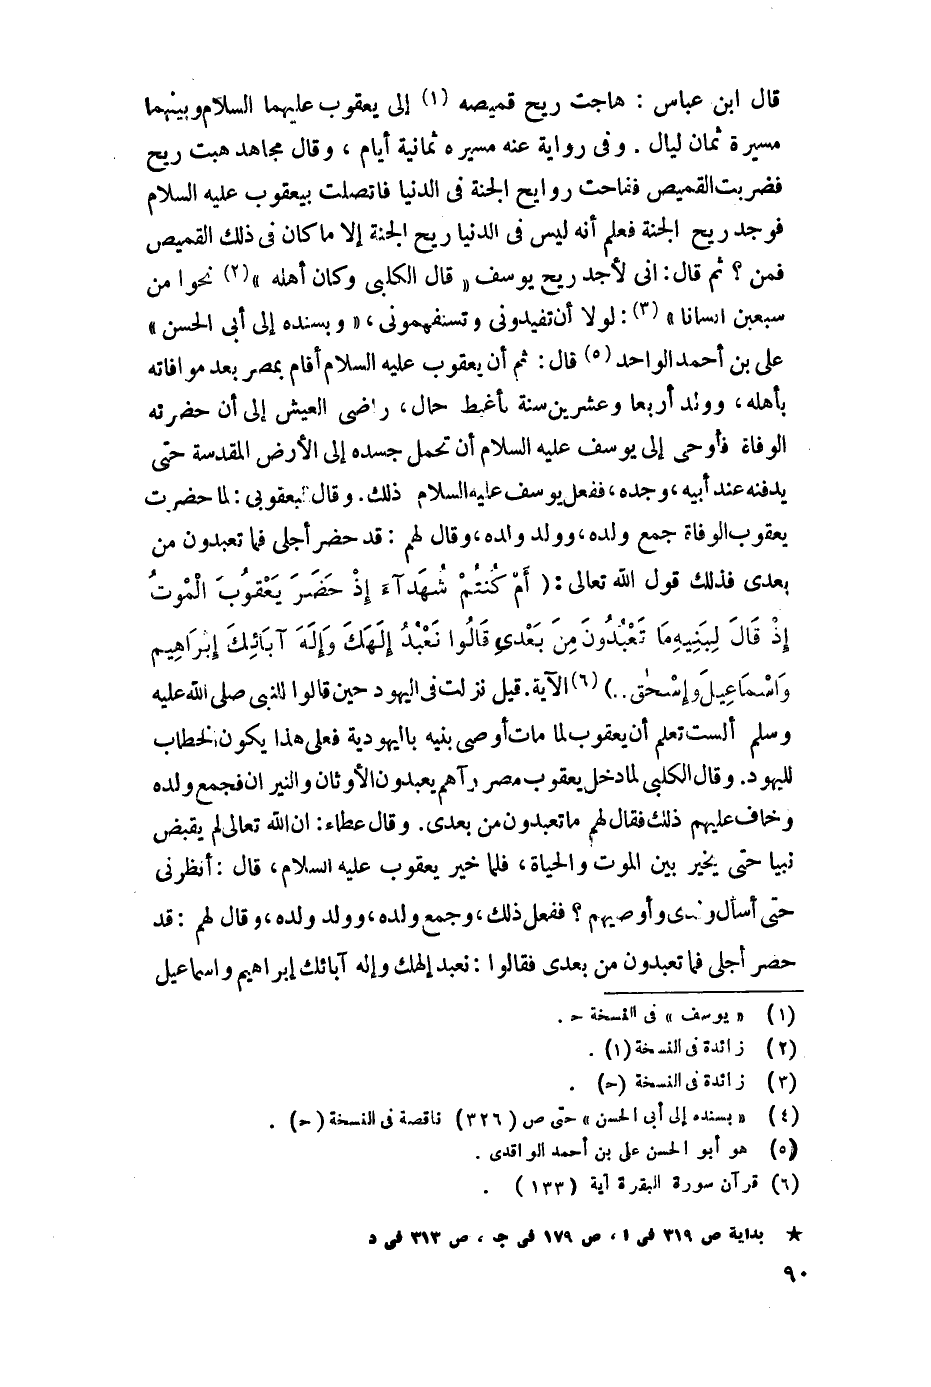 قال ابن عباس : هاجت ريح قميصه (١) إلى يعقوب عليهما السلام وبينهما
مسيرة ثمان ليال . وفى رواية عنه مسيره ثمانية أيام ، وقال مجاهد هبت ريح
فضربت القميص ففاحت روايح الجنة فى الدنيا فاتصلت بيعقوب عليه السلام
فوجد ريح الجنة فعلم أنه ليس فى الدنيا ريح الجنة إلا ما كان فى ذلك القميص
فمن ؟ ثم قال : انى لأجد ريح يوسف « قال الكلبى وكان أهله » (٢) نحوا من
سبعين انسانا » (٣) : لولا أن تفيدونى وتسنفهمونى ، « وبسنده إلى أبى الحسن »
على بن أحمد الواحد (٥) قال : ثم أن يعقوب عليه السلام أقام بمصر بعد موافاته
بأهله ، وولد أربعا وعشرين سنة بأغبط حال ، راضى العيش إلى أن حضرته
الوفاة فأوحى إلى يوسف عليه السلام أن تحمل جسده إلى الأرض المقدسة حتى
يدفنه عند أبيه ، وجده ، ففعل يوسف عليه السلام ذلك . وقال اليعقوبى : لما حضرت
يعقوب الوفاة جمع ولده ، وولد ولده ، وقال لهم : قد حضر أجلى فما تعبدون من
بعدى فذلك قول الله تعالى : ( أَمْ كُنتُمْ شُهَدَآءَ إِذْ حَضَرَ يَعْقُوبَ الْمَوْتُ
إِذْ قَالَ لِبَنِيهِ مَا تَعْبُدُونَ مِنَ بَعْدِى قَالُوا نَعْبُدُ إِلَهَكَ وَإِلَهَ آبَائِكَ إِبْرَاهِيم
وَاسْمَاعِيلَ وإِسْحٰق . . ) (٦) الآية . قيل نزلت فى اليهود حين قالوا للنبى صلى الله عليه
وسلم ألست تعلم أن يعقوب لما مات أوصى بنيه باليهودية فعلى هذا يكون الخطاب
لليهود . وقال الكلبى لما دخل يعقوب مصر رآهم يعبدون الأوثان والنيران فجمع ولده
وخاف عليهم ذلك فقال لهم ما تعبدون من بعدى . وقال عطاء : ان الله تعالى لم يقبض
نبيا حتى يخير بين الموت والحياة ، فلما خير يعقوب عليه السلام ، قال : أنظرنى
حتى أسأل ولدى وأوصيهم ؟ ففعل ذلك ، وجمع ولده ، وولد ولده ، وقال لهم : قد
حضر أجلى فما تعبدون من بعدى فقالوا : نعبد إلهك وإله آبائك إبراهيم واسماعيل
(١) « يوسف » فى النسخة ح .
(٢) زائدة فى النسخة (١) .
(٣) زائدة فى النسخة (ح) .
(٤) « بسنده إلى أبى الحسن » حتى ص (٣٢٦) ناقصة فى النسخة (ح) .
(٥) هو أبو الحسن على بن أحمد الواقدى .
(٦) قرآن سورة البقرة آية (١٣٣) .
★ بداية ص ٣١٩ فى ا ، ص ١٧٩ فى ج ، ص ٣١٣ فى د
٩٠